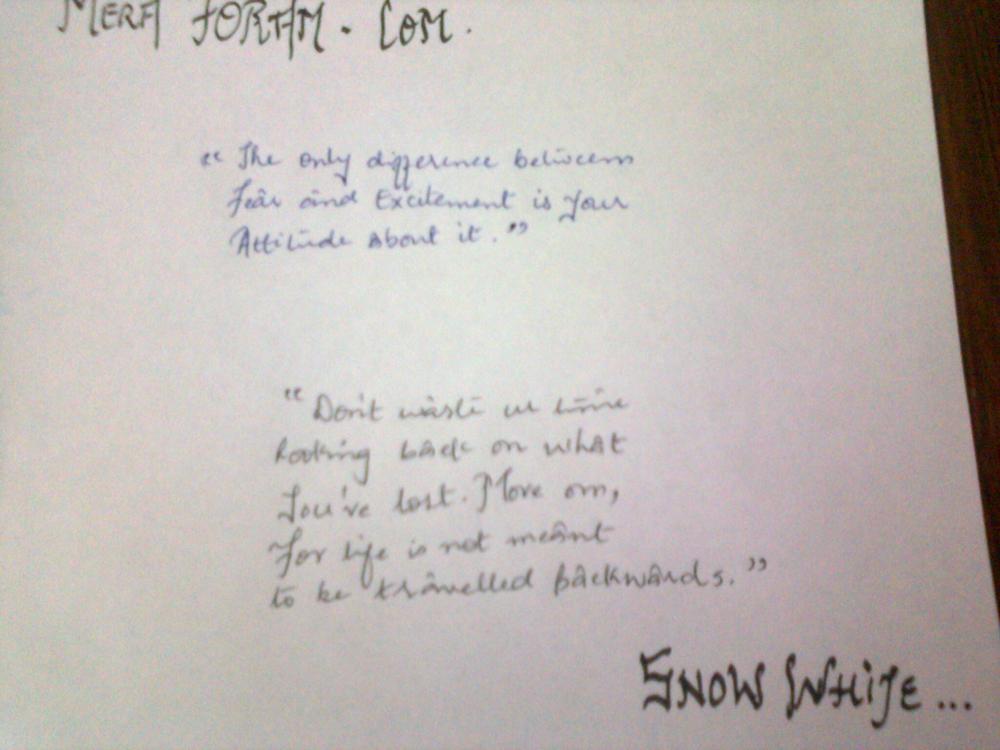 MERA FORAM. COM.
“ The only difference between
Fear and Excitement is Your
Attitude about it.”
“ Don't waste ur time
looking back on what
You've lost. Move on,
For life is not meant
to be travelled backwards.”
SNOW WHITE...